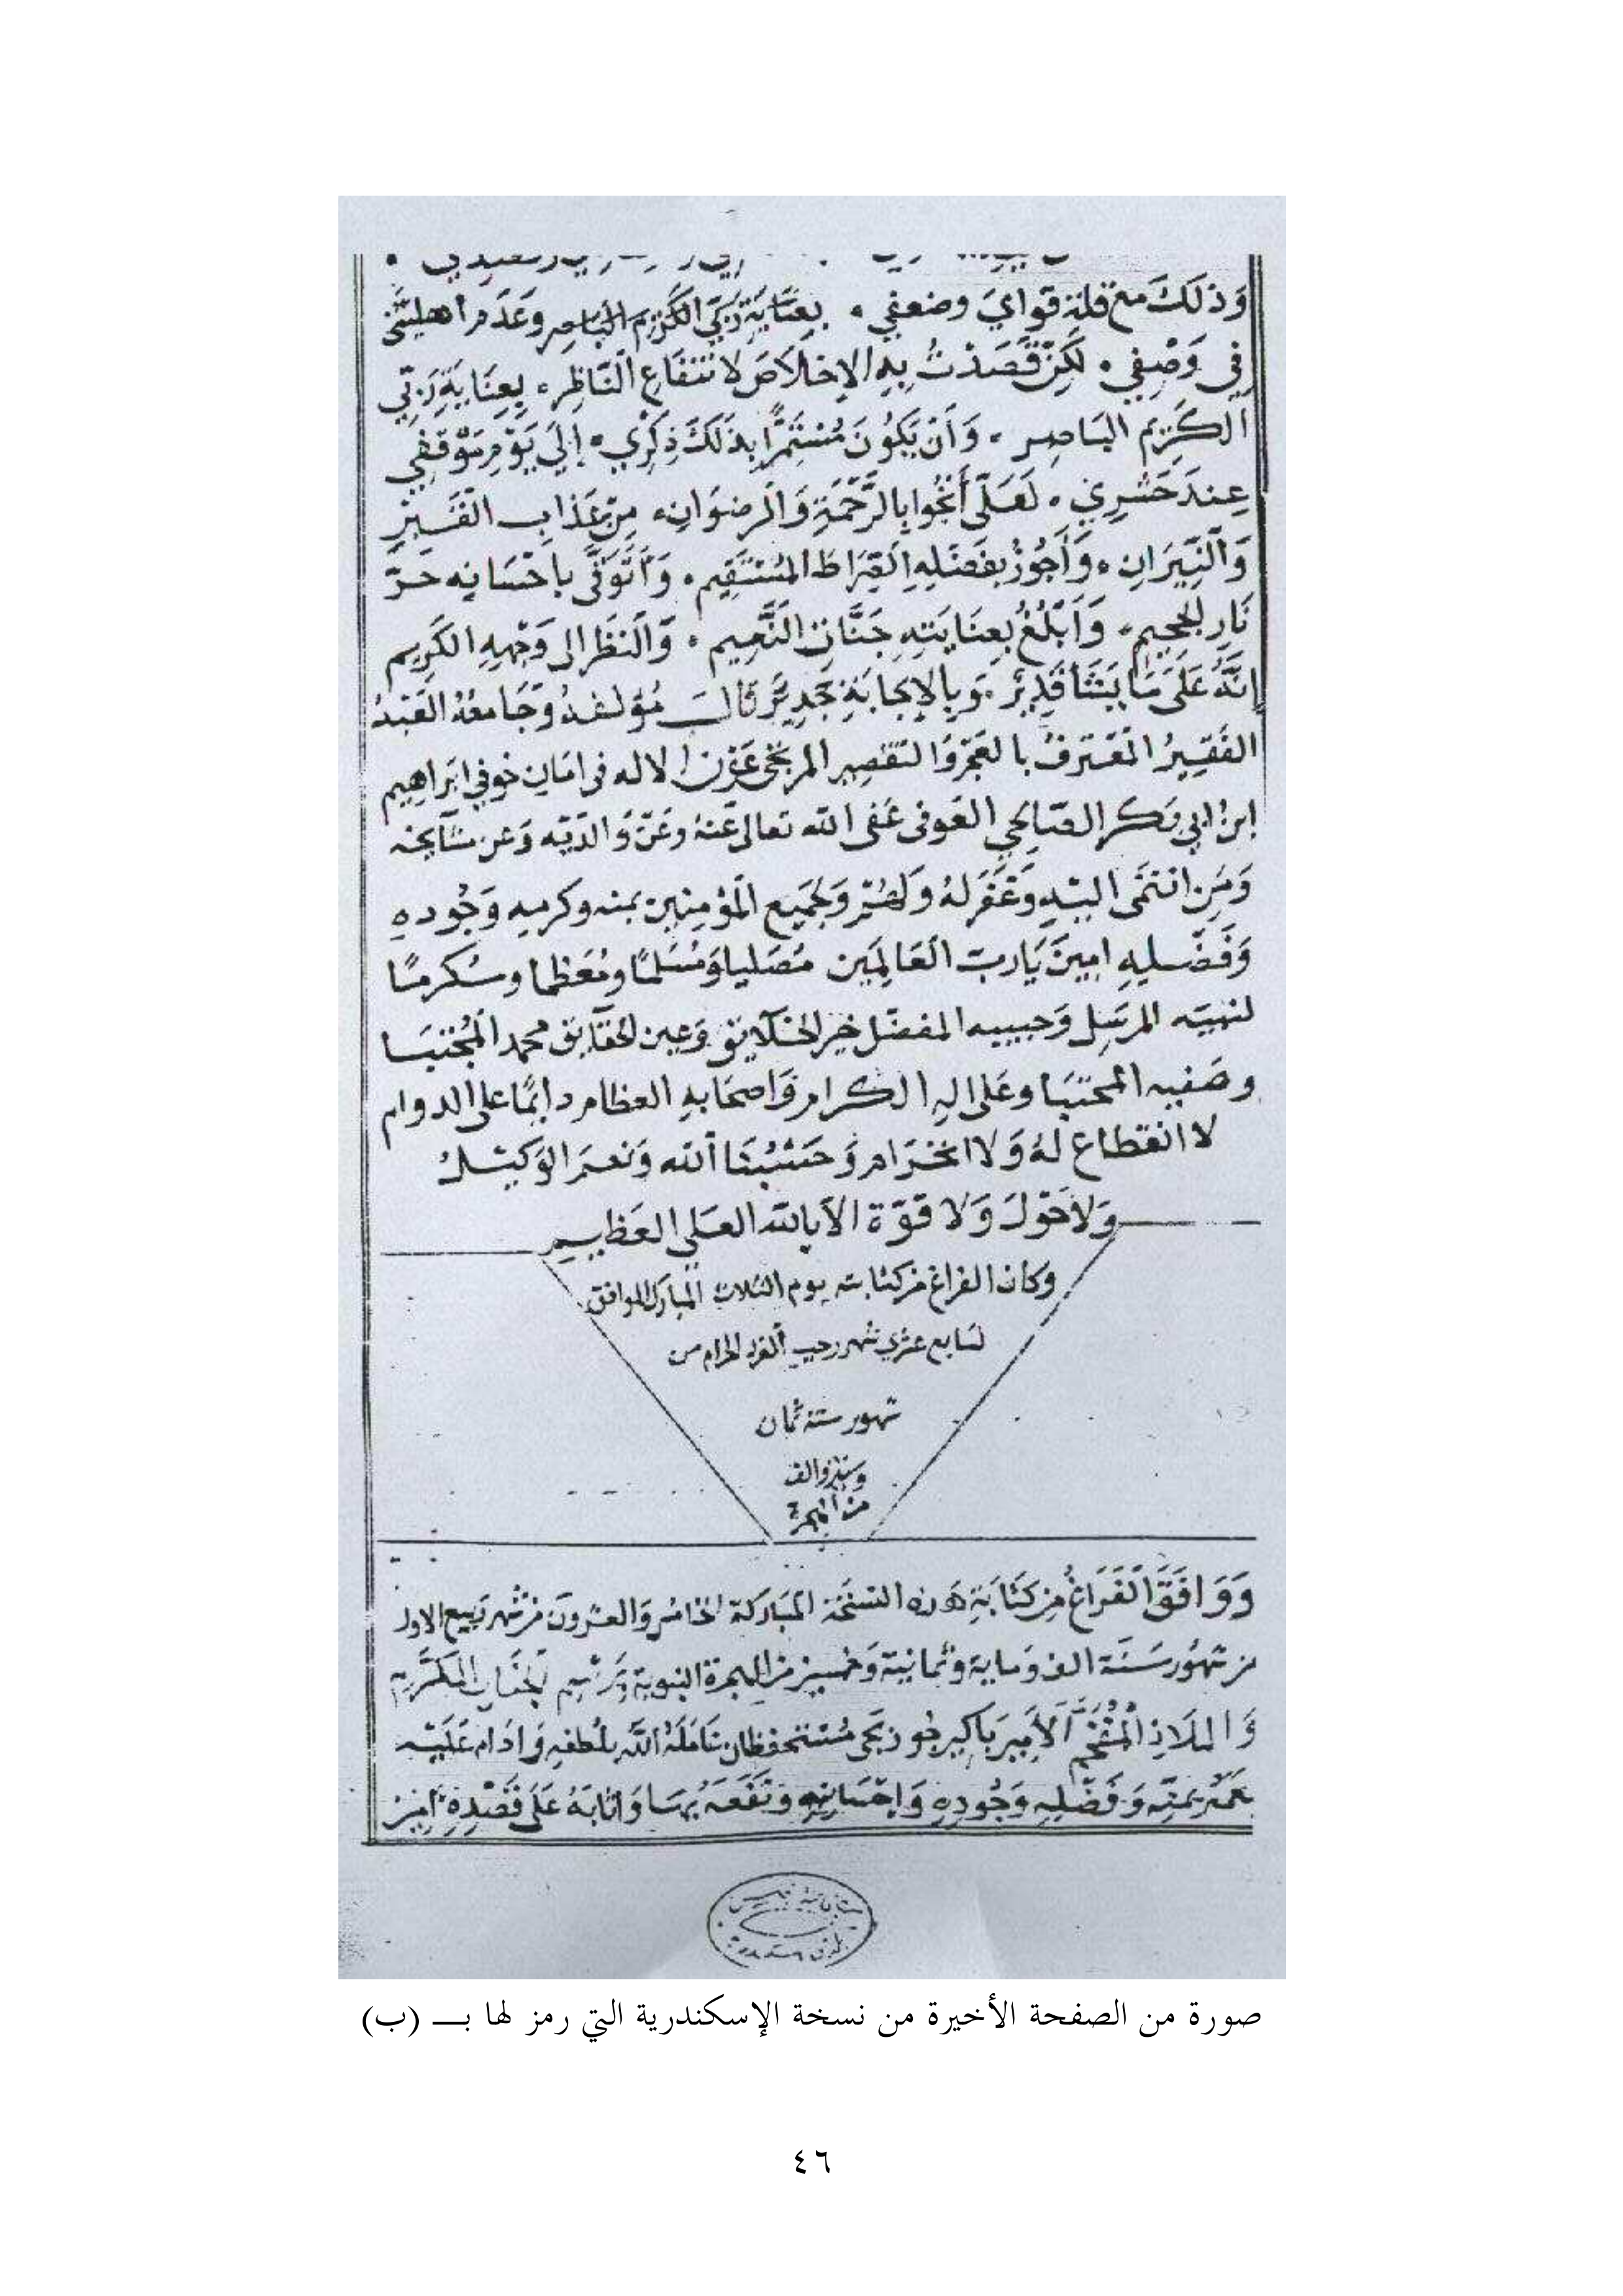 وَذلكَ مع قلة قوايَ وضعفي ۰ بعنَايَة رَبّي الكَرِيم الناصر وعَدَم أهليتي
في وَصْفي ۰ لَكِنْ قَصَدْتُ بِهِ الإخلاصَ لانتفَاع النَّاظِر ۰ بِعِنَايَةِ رَبّي
الكَرِيم النَاصِر ۰ وَأَنْ يَكُونَ مُسْتَمِرًّا بذَلَكَ ذِكْرِي ۰ إلَي يَوْمِ مَوْقفي
عِندَ حَشْرِي ۰ لَعَلّى أنجُوا بالرَّحْمَةِ وَالرضوَانِ ۰ مِنْ عَذَابِ القَبْرِ
وَالنِّيرَانِ ۰ وَأَجُوزُ بفَضْلِهِ الصِّرَاطَ المُسْتَقِيم ۰ وَأتَوَقَّى باحْسَانِه حَرّ
نَارِ الجحيم ۰ وَأَبْلُغُ بعِنَايَتِهِ جَنَّاتِ النَّعِيم ۰ وَالنظَر الى وَجْهِهِ الكَرِيم
إنَّهُ عَلَى مَا يَشَا قَدِيْرٌ ۰ وَبِالإجَابَةِ جَدِيْرٌ قَالَ مُؤلفهُ وَجَامعُهُ العَبْدُ
الفَقِيْرُ المعْترفُ بالعَجْزِ وَالتقصِير المرتجى عَفْوَ الاله فى امَانٍ خوفي ابرَاهِيم
ابن ابي بَكر الصَالحي العَوفى عَفى الله تعَالى عَنهُ وعَنْ وَالدَيْه وَعن مشَايخه
وَمَنِ انتَمَى اليْهِ وَغفَرَ لهُ وَلهُمْ وَلجَمِيع المُؤمِنِين بمَنه وكَرمِهِ وَجُودِهِ
وَفَضْلِهِ امِينَ يَا ربّ العَالمِين مُصَليا وَمُسَلمًا ومُعَظما ومُكرمًا
لنبيّه المرسَل وَحبيبه المفضّل خير الخلَايق وَعين الحقَايق محمد المُجْتبَا
وصَفيه المجتبَا وعَلى اله الكرام وَاصحَابهِ العظام دَايمًا على الدوام
لا انقطاع لهُ وَلا انخرَام وَحَسْبُنَا اللّه وَنعمَ الوَكيْل
وَلاحَوْلَ وَلا قوّة الا بالله العَلي العَظيم
وكان الفراغ من كتابته يوم الثلاث المبارك الموافق
لسَابع عشري شهر رجب الفرد الحرام من
شهور سَنة ثمان
وستين والف
من الهجرة
وَوَافَقَ الفَرَاغُ مِن كتَابَةِ هَذه النسْخَة المُبَاركة الخامس وَالعشرون من شهر رَبيع الاول
من شهُور سَنَة الف وَماية وثمانية وَخمسين من الهجرة النبوية بِرَسْمِ الجنَاب المكَرَّم
وَالملَاذ المُفَخَّم الأمِير بَاكير جُوزبَجى مُسْتحفظان عَامَلهُ اللَّه بلُطْفهِ وَادَام عَلَيْه
نعَمَهُ بمَنّه وَفَضْلِهِ وَجُودِهِ وَاحْسَانِهِ وَنَفَعَهُ بهَا وَاثابَهُ عَلَى قَصْدِهِ امين
صورة من الصفحة الأخيرة من نسخة الإسكندرية التي رمز لها بـ (ب)
٤٦